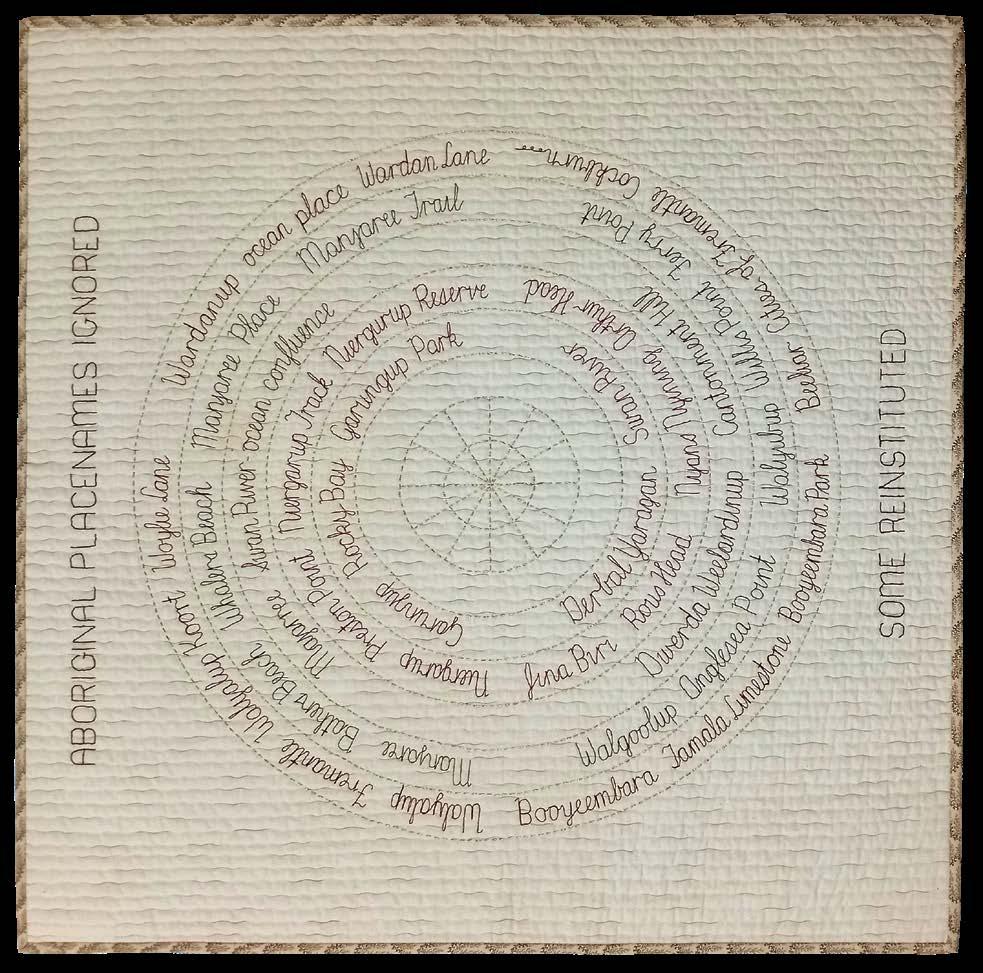 ABORIGINAL PLACENAMES IGNORED
Walyalup Fremantle Walyalup Koort Woylie Lane Wardanup ocean place Wardan Lane
Manjaree Bathers Beach Whalers Beach Manjaree Place Manjaree Trail
Swan River ocean confluence
Niergarup Preston Point Niergarup Track Niergurup Reserve
Garungup Rocky Bay Garungup Park
Derbal Yaragan Swan River
Jina Biri Rous Head Niyand Nyinning Arthur Head
Dwerda Weelardinup Cantonment Hill
Walgoolup Anglesea Point Walyubup Willis Point Jerry Point
Booyeembara Tamala Limestone Booyeembara Park Beeliar Cities of Fremantle Cockburn
SOME REINSTITUTED